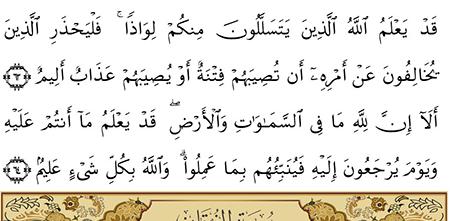 قَدْ يَعْلَمُ ٱللَّهُ ٱلَّذِينَ يَتَسَلَّلُونَ مِنكُمْ لِوَاذًا ۚ فَلْيَحْذَرِ ٱلَّذِينَ
يُخَالِفُونَ عَنْ أَمْرِهِۦٓ أَن تُصِيبَهُمْ فِتْنَةٌ أَوْ يُصِيبَهُمْ عَذَابٌ أَلِيمٌ
أَلَآ إِنَّ لِلَّهِ مَا فِى ٱلسَّمَـٰوَٰتِ وَٱلْأَرْضِ ۖ قَدْ يَعْلَمُ مَآ أَنتُمْ عَلَيْهِ
وَيَوْمَ يُرْجَعُونَ إِلَيْهِ فَيُنَبِّئُهُم بِمَا عَمِلُوا۟ ۗ وَٱللَّهُ بِكُلِّ شَىْءٍ عَلِيمٌۢ